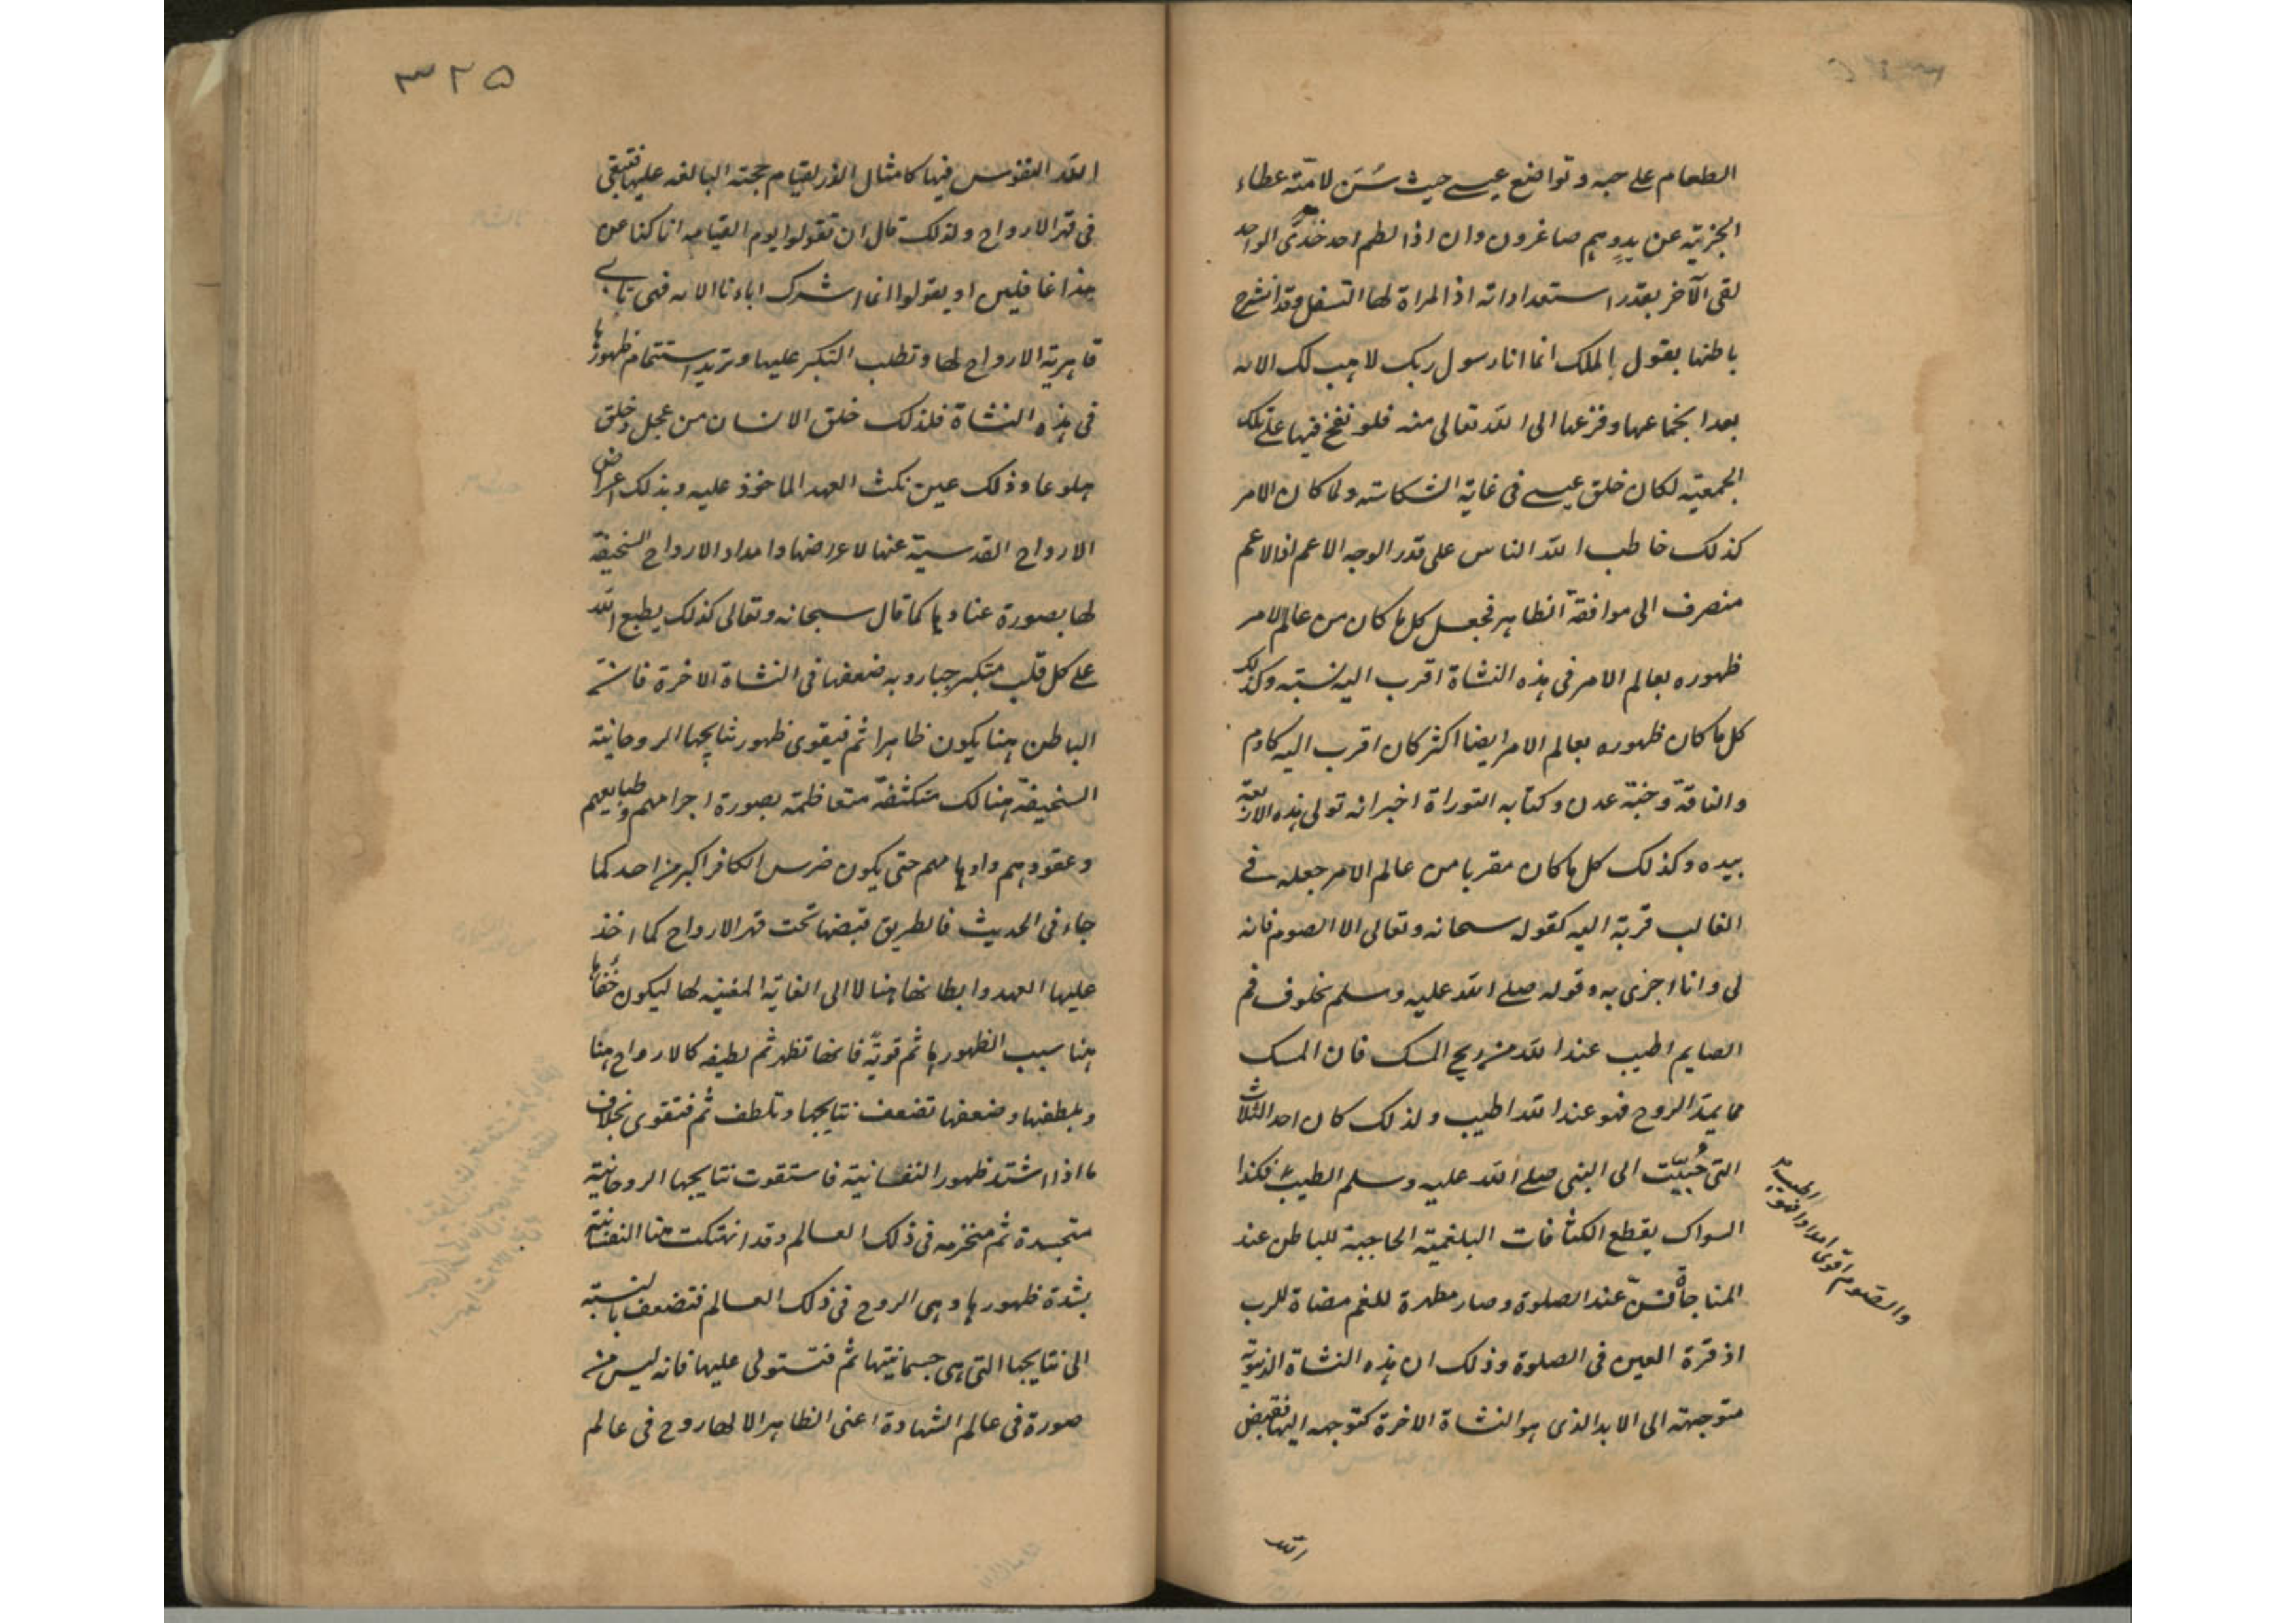 الطعام على حبه وتواضع عيسى حيث سُنّ لامته عطاء
الجزية عن يدٍ وهم صاغرون وان اذا لطم احد خدى الواحد
لقى الآخر بقدر استعداداته اذ المراة لها التسفل وقد انشرح
باطنها بقول الملك انما انا رسول ربك لاهب لك الآن
بعد انجماعها وفزعها الى الله تعالى منه فلو نفخ فيها على تلك
الجمعية لكان خلق عيسى فى غاية الشكاسة ولما كان الامر
كذلك خاطب الله الناس على قدر الوجه الاعم اذ الاعم
منصرف الى موافقة الظاهر فجعل كل ما كان من عالم الامر
ظهوره بعالم الامر فى هذه النشاة اقرب اليه نسبته وكذلك
كل ما كان ظهوره بعالم الامر ايضا اكثر كان اقرب اليه كادم
والناقة وجنة عدن وكتابه التوراة اخبر انه تولى هذه الاربعة
بيده وكذلك كل ما كان مقربا من عالم الامر جعله فى
الغالب قربة اليه كقوله سبحانه وتعالى الا الصوم فانه
لى وانا اجزى به وقوله صلى الله عليه وسلم لخلوف فم
الصايم اطيب عند الله من ريح المسك فان المسك
مما يمد الروح فهو عند الله اطيب ولذلك كان احد الثلاث
التى حُبّبت الى النبى صلى الله عليه وسلم الطيب فكذا
السواك يقطع الكثافات البلغمية الحاجبة للباطن عند
المناجاة فسُنّ عند الصلوة وصار مطهرة للفم مرضاة للرب
اذ قرة العين فى الصلوة وذلك ان هذه النشاة الدنيوية
متوجهة الى الابد الذى هو النشاة الاخرة كتوجهه اليها فقبض
الطيب يمد
الروح
والصوم اقوى امدادا فهو
الله
٣٢٥
الله النفوس فيها كامثال الذر لقيام حجته البالغه عليها فتبقى
فى قهر الارواح ولذلك قال ان تقولوا يوم القيامه انا كنا عن
هذا غافلين او يقولوا انما اشرك اباءنا الان فهى تابى
قاهرية الارواح لها وتطلب التكبر عليها وتريد استتمام ظهورها
فى هذه النشاة فلذلك خلق الانسان من عجل وخلق
هلوعا وذلك عين نكث العهد الماخوذ عليه وبذلك اعراض
الارواح القدسية عنها لاعراضها وامداد الارواح السخيفة
لها بصورة عنادها كما قال سبحانه وتعالى كذلك يطبع الله
على كل قلب متكبر جبار وبه ضعفها فى النشاة الاخرة فان
الباطن هنا يكون ظاهرا ثم فيقوى ظهور نتايجها الروحانية
السخيفة هنالك متكثفة متعاظمة بصورة اجرامهم وطبايعهم
وعقودهم واوهامهم حتى يكون ضرس الكافر اكبر من احد كما
جاء فى الحديث فالطريق قبضها تحت قهر الارواح كما اخذ
عليها العهد وابطانها هنا لا الى الغاية المفنيه لها ليكون خفاها
هنا سبب الظهورها ثم قوية فانها تظهر ثم لطيفه كالارواح هنا
وبلطفها وضعفها تضعف نتايجها وتلطف ثم فتقوى بخلاف
ما اذا اشتد ظهور النفسانية فاستقوت نتايجها الروحانية
متجسدة ثم منخرمه فى ذلك العالم وقد انهتكت هنا النفسانية
بشدة ظهورها وهى الروح فى ذلك العالم فتضعف بالنسبة
الى نتايجها التى هى جسمانيتها ثم فتستولى عليها فانه ليس من
صورة فى عالم الشهادة اعنى الظاهر الا لها روح فى عالم